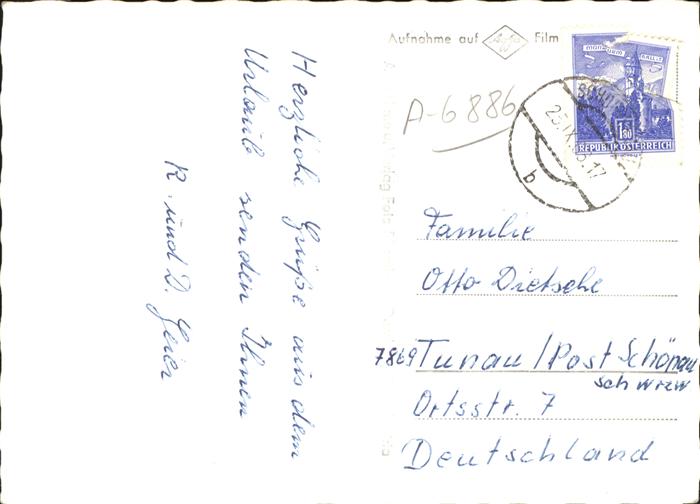 Herzliche Grüße aus dem
Urlaub senden Ihnen
R. und D. Geier
Aufnahme auf Agfa Film
A-6886
1.80
REPUBLIK ÖSTERREICH
b
Familie
Otto Dietsche
7869 Tunau/Post Schönau
Schwrzw
Ortsstr. 7
Deutschland